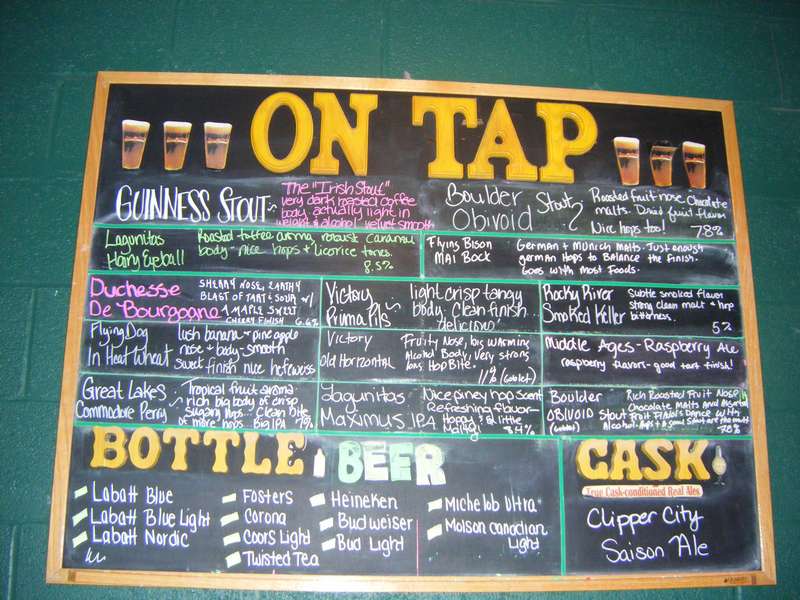 ON TAP
GUINNESS STOUT
The "Irish Stout"
very dark roasted coffee
body, actually light in
weight & alcohol velvet smooth
Boulder
Obivoid
Stout
Roasted fruit nose, Chocolate
malts. Dried fruit flavor
Nice hops too! 7.8%
Lagunitas
Hairy Eyeball
Roasted toffee aroma, robust caramel
body - nice hops & licorice tones.
8.5%
Flying Bison
Mai Bock
German & Munich Malts. Just enough
german Hops to Balance the finish.
Goes with most Foods.
Duchesse
De Bourgogne
SHERRY NOSE, EARTHY
BLAST OF TART & SOUR w/
A MAPLE SWEET
CHERRY FINISH 6.6%
Victory
Prima Pils
light crisp tangy
body. Clean finish...
delicious!
Rocky River
Smoked Keller
Subtle smoked flavor
strong clean malt & hop
bitterness.
5%
Flying Dog
In Heat Wheat
lush banana & pineapple
nose & body - smooth
sweet finish nice hefeweiss
Victory
Old Horizontal
Fruity Nose, big warming
Alcohol Body, Very strong
long Hop Bite.
11%
Middle Ages - Raspberry Ale
raspberry flavor - good tart finish!
Great Lakes
Commodore Perry
Tropical fruit aroma
rich big body of crisp
Sugary hops... Clean bite
of more hops. Big IPA 7%
Lagunitas
Maximus IPA
Nice piney hop scent
Refreshing flavor
Hoppy! & little
Malty!
Boulder
OBIVOID Stout
Rich Roasted Fruit Nose
Chocolate Malts and
Fruit Flavors Dance with
Alcohol
BOTTLE BEER
Labatt Blue
Labatt Blue Light
Labatt Nordic
Fosters
Corona
Coors Light
Twisted Tea
Heineken
Budweiser
Bud Light
Michelob Ultra
Molson Canadian
Light
CASK
True Cask-conditioned Real Ales
Clipper City
Saison Ale